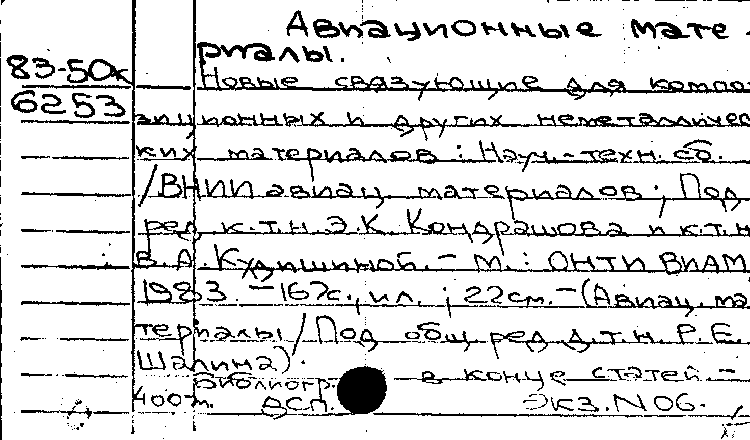 Авиационные мате-
риалы.
83-50к
6253
Новые связующие для компо-
зиционных и других неметалличес
ких материалов: Науч.-техн. сб.
/ВНИИ авиац. материалов; Под
ред. к.т.н. Э.К. Кондрашова и к.т.н
В.А. Кудишиной. - М.: ОНТИ ВИАМ,
1983. - 167с., ил.; 22см. - (Авиац. ма
териалы/Под общ. ред. д.т.н. Р.Е.
Шалина).
Библиогр. в конце статей. -
400т. ДСП. Экз. N 06.